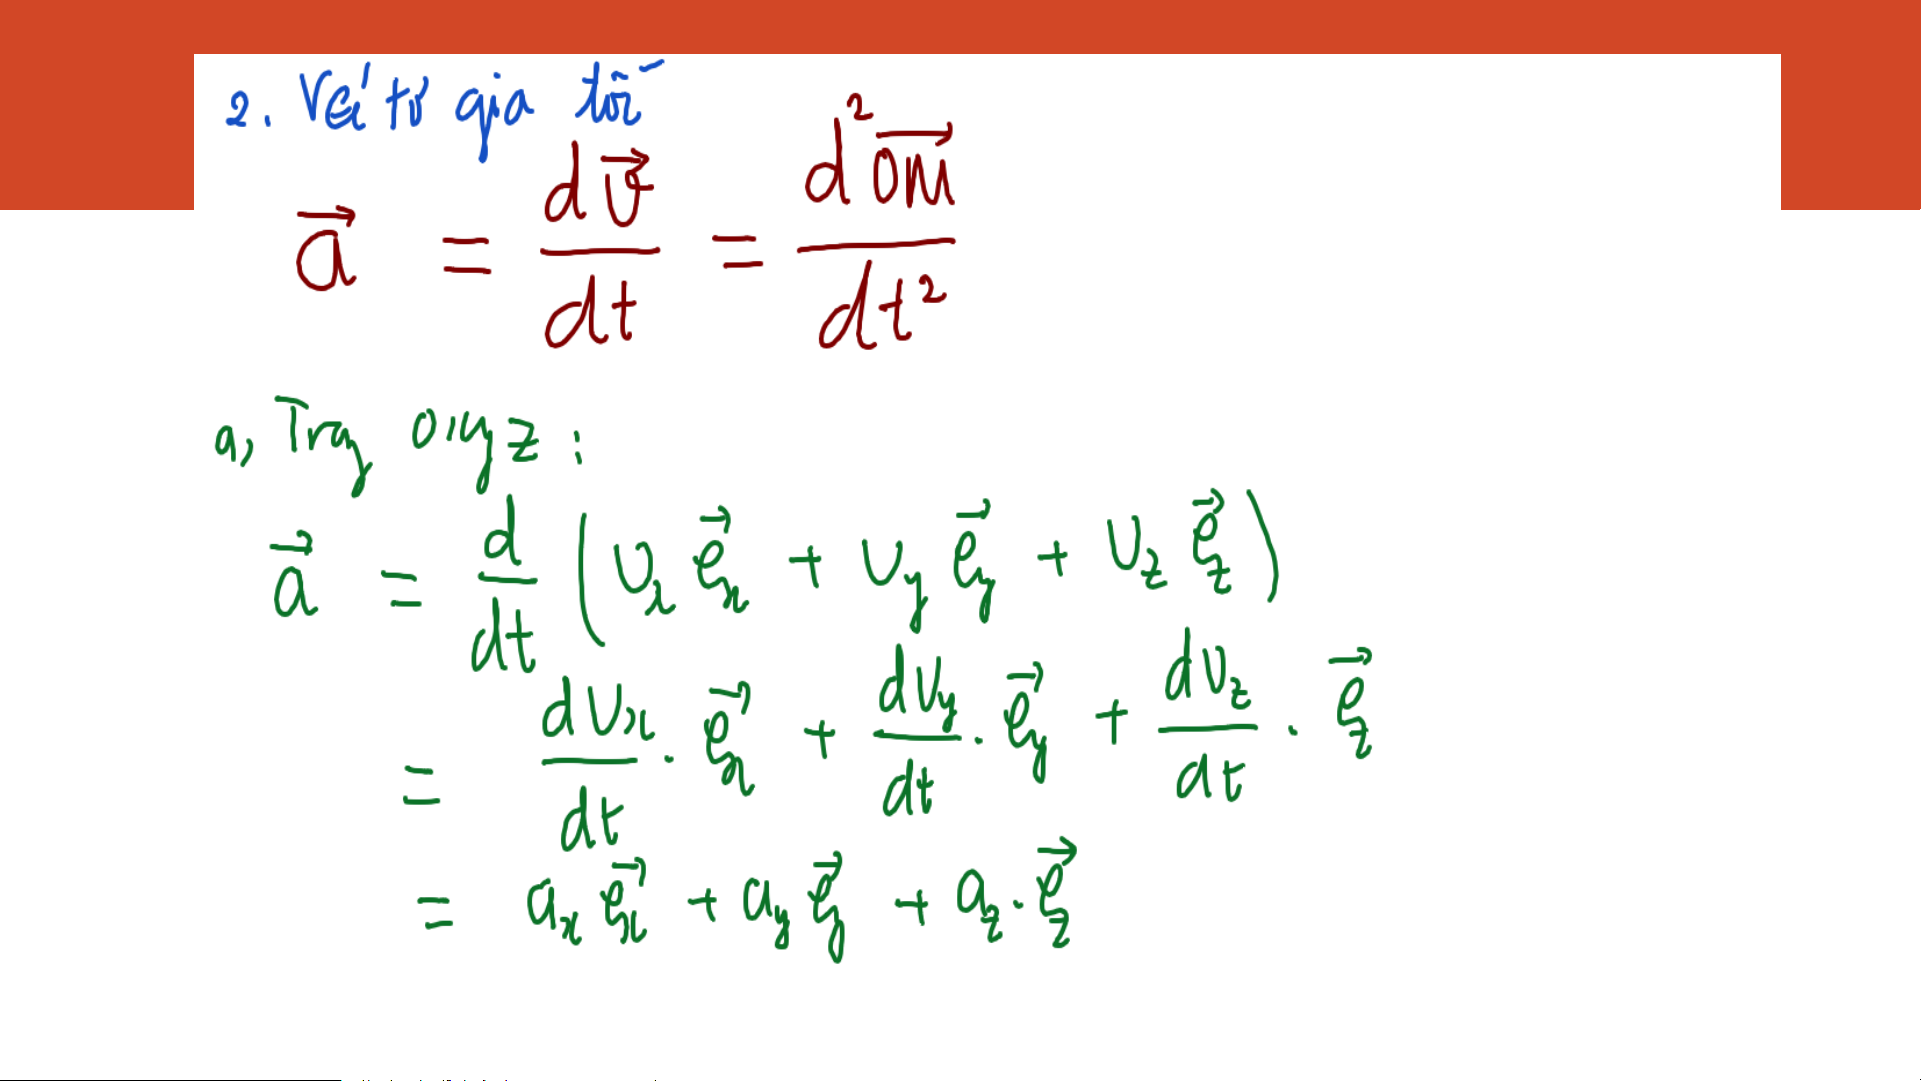 2. Véc tơ gia tốc
\vec{a} = \frac{d\vec{v}}{dt} = \frac{d^2\overrightarrow{OM}}{dt^2}
a, Trong Oxyz :
\vec{a} = \frac{d}{dt} ( v_x \vec{e}_x + v_y \vec{e}_y + v_z \vec{e}_z )
= \frac{dv_x}{dt} . \vec{e}_x + \frac{dv_y}{dt} . \vec{e}_y + \frac{dv_z}{dt} . \vec{e}_z
= a_x \vec{e}_x + a_y \vec{e}_y + a_z . \vec{e}_z